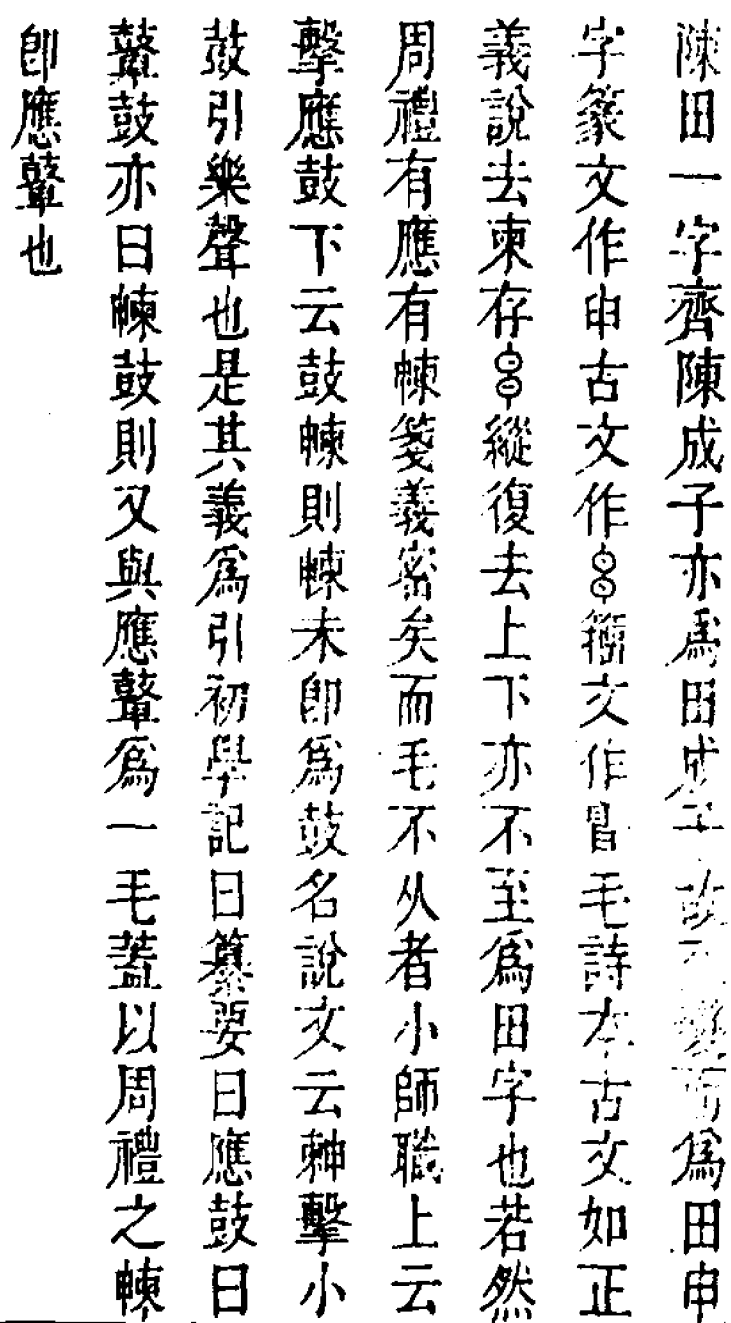 陳田一字齊陳成子亦爲田成子故變而爲田申
字篆文作申古文作籀文作毛詩本古文如正
義說去柬存縱復去上下亦不至爲田字也若然
周禮有應有朄箋義密矣而毛不从者小師職上云
擊應鼓下云鼓朄則朄未卽爲鼓名說文云朄擊小
鼓引樂聲也是其義爲引初學記曰纂要曰應鼓曰
鼙鼓亦曰朄鼓則又與應鼙爲一毛蓋以周禮之朄
卽應鼙也